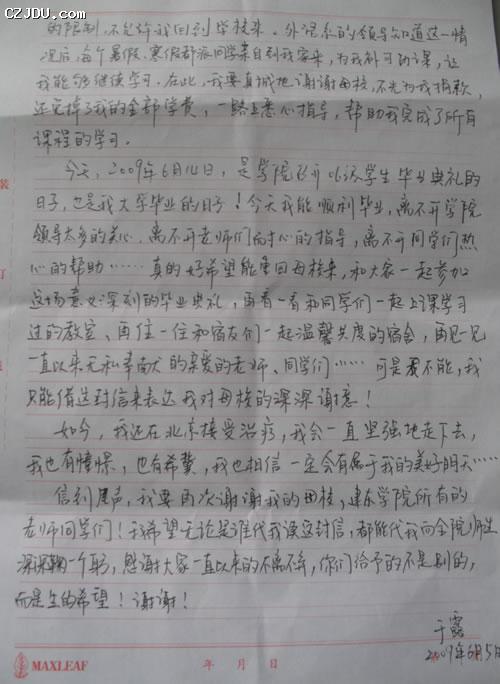 CZJDU.COM
的限制,不允许我回到学校来。外语系的领导知道这一情
况后,每个暑假、寒假都派同学亲自到我家来,为我补习功课,让
我能够继续学习。在此,我要真诚地谢谢母校,不光为我捐款,
还免掉了我的全部学费,一路上悉心指导,帮助我完成了所有
课程的学习。
今天,2009年6月14日,是学院召开06级学生毕业典礼的
日子,也是我大学毕业的日子!今天我能顺利毕业,离不开学院
领导太多的关心,离不开老师们耐心的指导,离不开同学们热
心的帮助……真的好希望能重回母校来,和大家一起参加
这场意义深刻的毕业典礼,再看一看和同学们一起上课学习
过的教室、再住一住和宿友们一起温馨共度的宿舍,再见一见
一直以来无私奉献的亲爱的老师、同学们……可是不能,我
只能借这封信来表达我对母校的深深谢意!
如今,我还在北京接受治疗,我会一直坚强地走下去,
我也有憧憬,也有希冀,我也相信一定会有属于我的美好明天……
信到尾声,我要再次谢谢我的母校,建东学院所有的
老师同学们!我希望无论是谁代我读这封信,都能代我向全院师生
深深鞠一个躬,感谢大家一直以来的不离不弃,你们给予的不是别的,
而是生的希望!谢谢!
于露
2009年6月5日
MAXLEAF
年 月 日
装
订